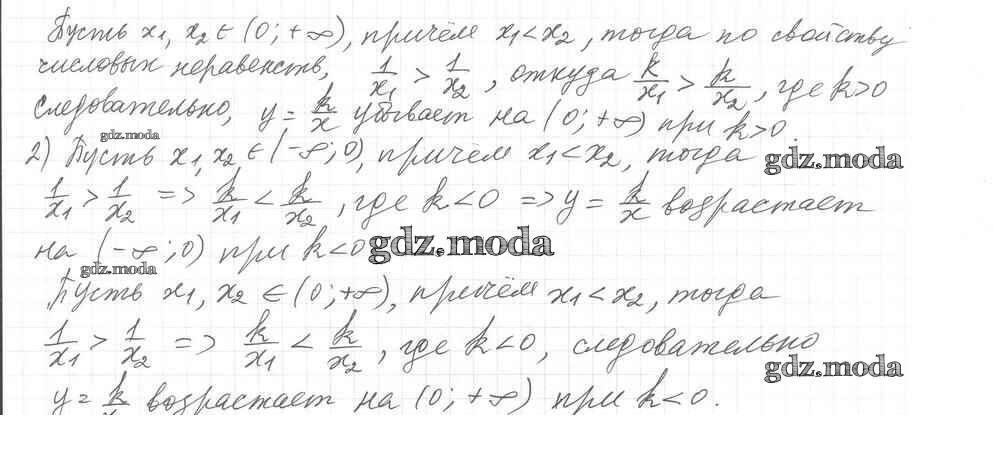 Пусть x₁, x₂ ∈ (0; +∞), причём x₁ < x₂, тогда по свойству
числовых неравенств, 1/x₁ > 1/x₂, откуда k/x₁ > k/x₂, где k>0
следовательно, y = k/x убывает на (0; +∞) при k>0.
gdz.moda
2) Пусть x₁, x₂ ∈ (-∞; 0), причём x₁ < x₂, тогда
gdz.moda
1/x₁ > 1/x₂ => k/x₁ < k/x₂, где k<0 => y = k/x возрастает
на (-∞; 0) при k<0
gdz.moda
gdz.moda
Пусть x₁, x₂ ∈ (0; +∞), причём x₁ < x₂, тогда
1/x₁ > 1/x₂ => k/x₁ < k/x₂, где k<0, следовательно
gdz.moda
y = k/x возрастает на (0; +∞) при k<0.